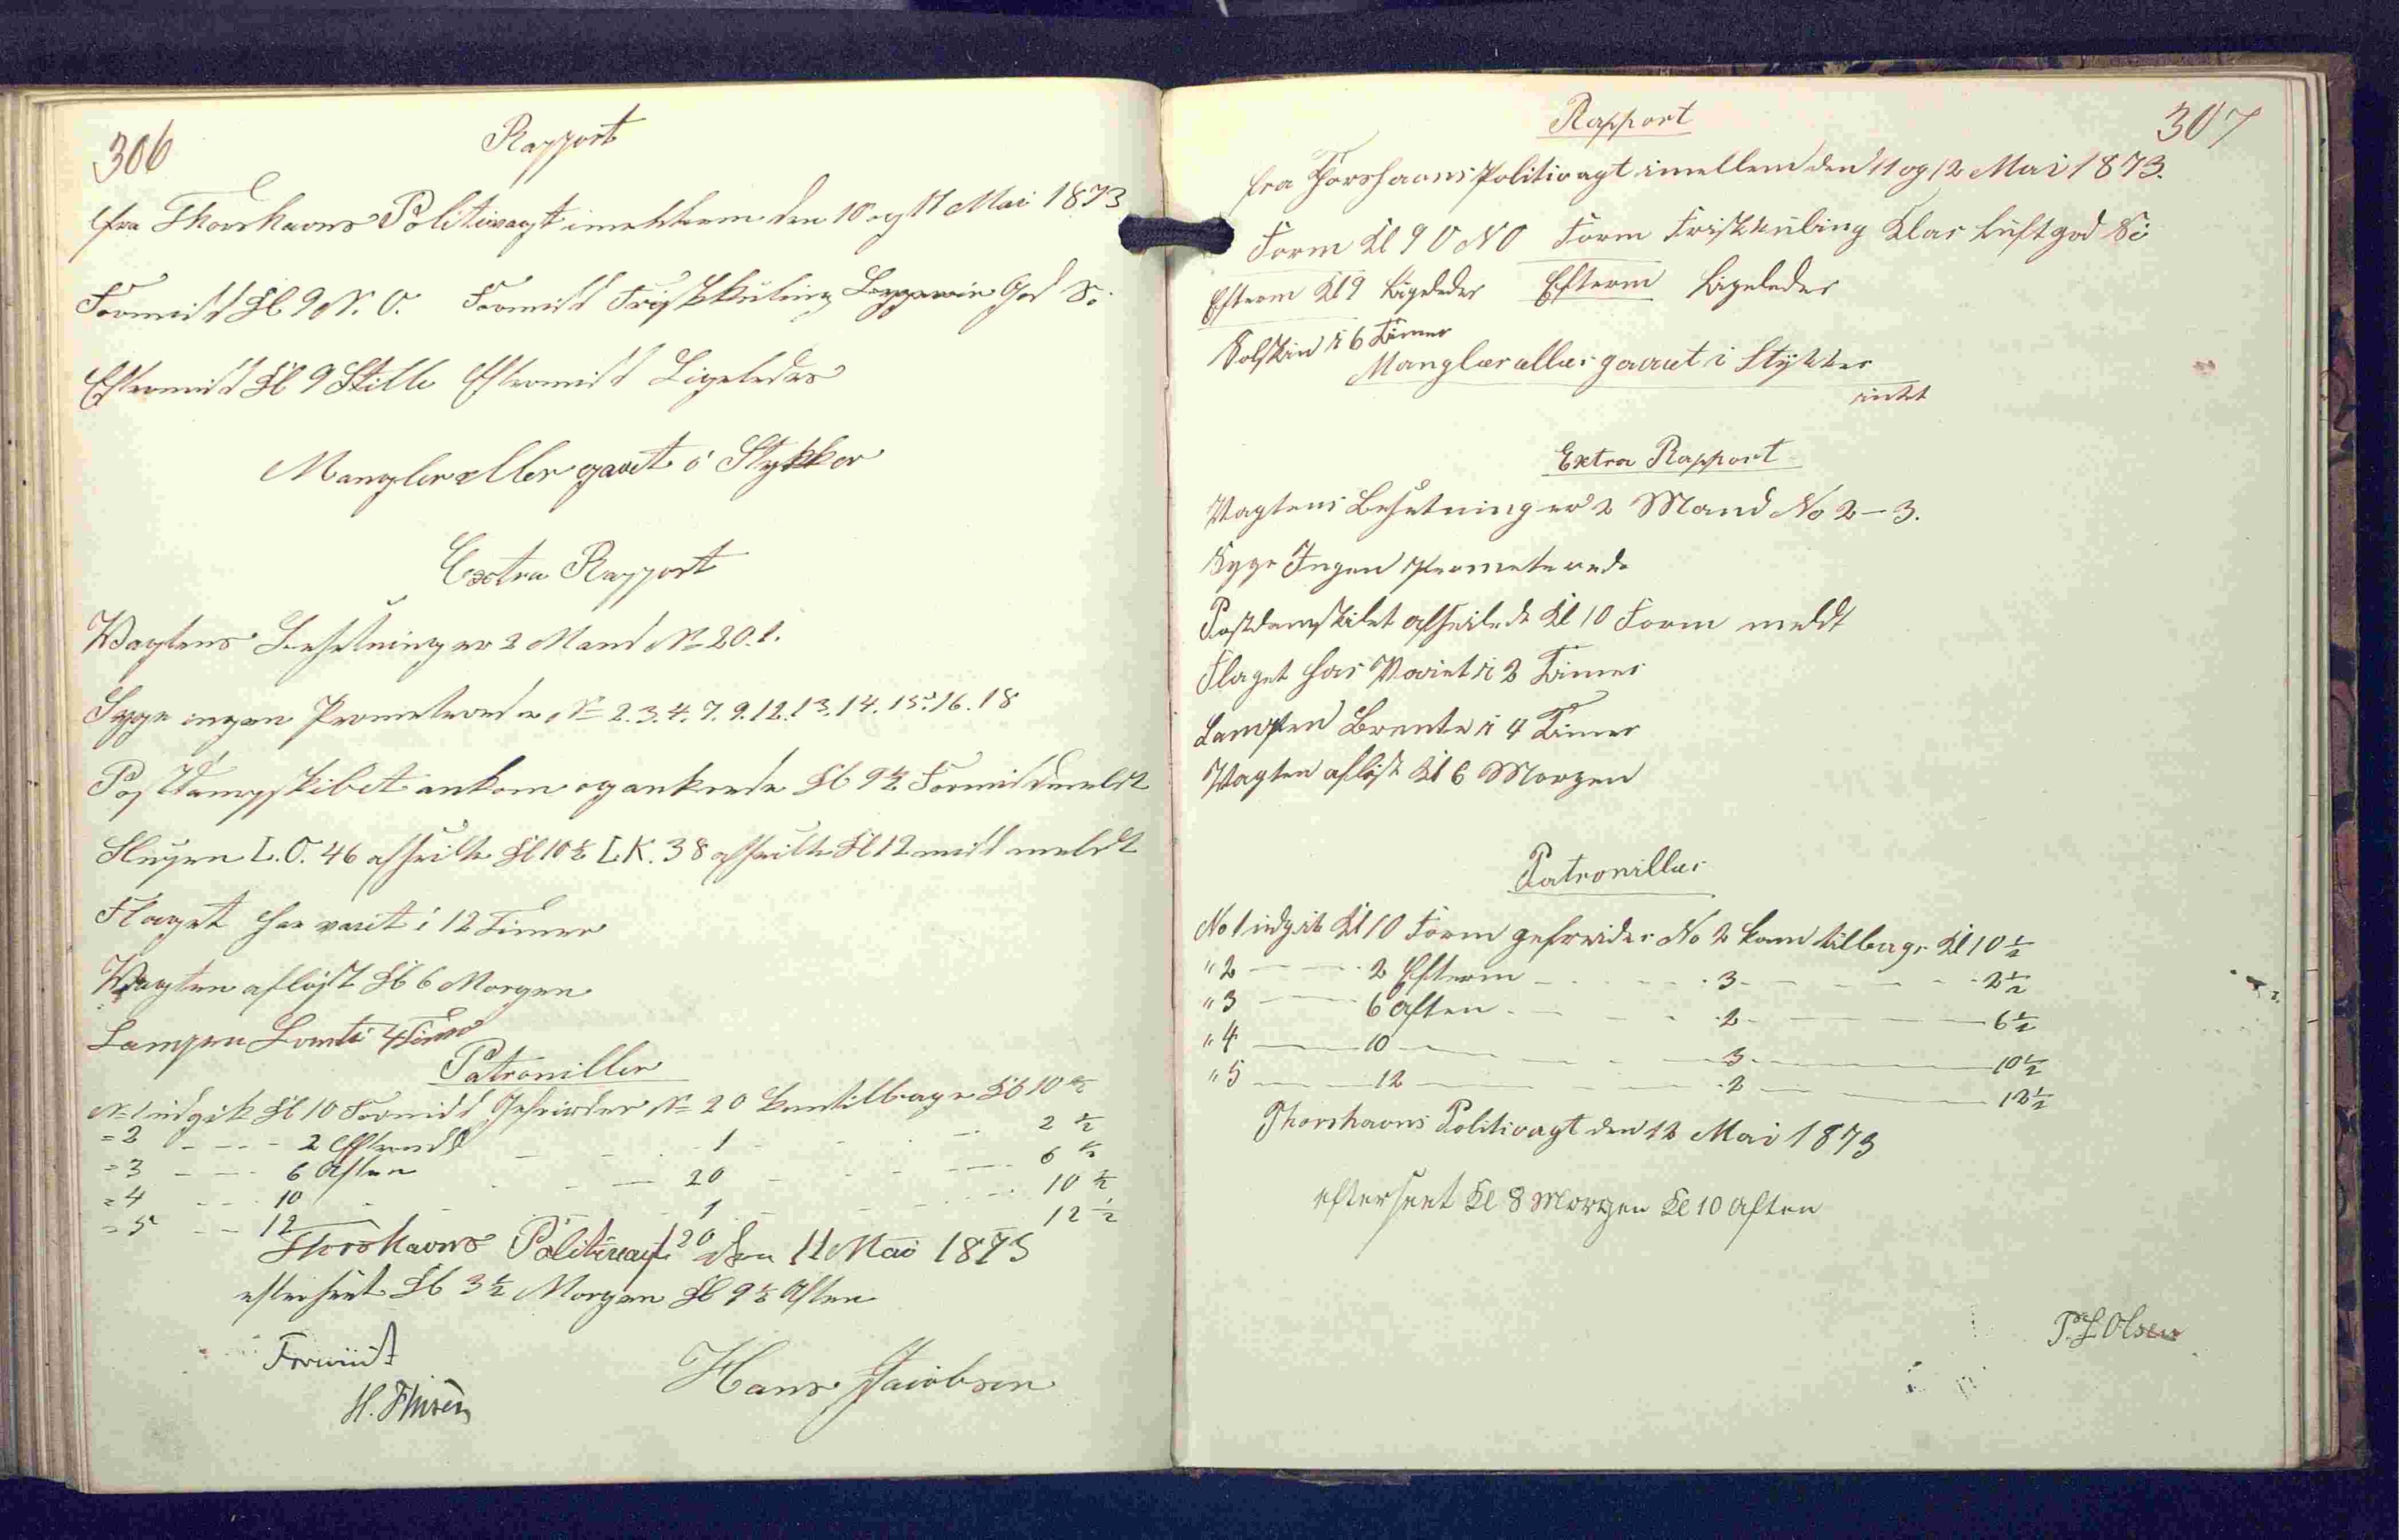 306
Rapport
fra Thorshavns Politivagt imellem den 10 og 11 Mai 1873
Formidd Kl 9 N. O. Formidd Friskkuling God S.
Eftermidd Kl 9 Stille Eftermidd Ligeledes
Mangler eller gaaet i Stykker
Extra Rapport
Vagtens Besetning er 2 Mand No 20. 1.
Syge ingen Permeterede No 2. 3. 4. 7. 9. 12. 13. 14. 15. 16. 18
Postdampskibet ankom og ankrede Kl 9½ Formidd meldt
Slupen L.O. 46 afseilte Kl 10½ L.K. 38 afseilte Kl 12 midd meldt
Flaget har varet i 12 Timer
Vagten afløst Kl 6 Morgen
Lampen Brente 4 Timer
Patroniller
No 1 indgik Kl 10 Formidd Gefreider No 20 kom tilbage Kl 10½
=2 - - - - 2 Eftermidd - - - 1 - - - 2½
=3 - - - 6 Aften - - - 20 - - - 6½
=4 - - - 10 - - - 1 - - - 10½
=5 - - 12 - - - 20 - - - 12½
Thorshavns Politivagt den 11 Mai 1873
efterseet Kl 3½ Morgen Kl 9½ Aften
Hans Jacobsen
307
Rapport
fra Thorshavns Politivagt imellem den 11 og 12 Mai 1873.
Form Kl 9 O N O Form Friskkuling Klar Luft god Si
Efterm Kl 9 Ligeledes Efterm Ligeledes
Solskin i 6 Timer
Mangler eller gaaet i Stykker
intet
Extra Rapport
Vagtens Besetning er 2 Mand No 2 – 3.
Syge Ingen Permeterede
Postdampskibet afseilede Kl 10 Form meldt
Flaget har Været i 2 Timer
Lampen Brente i 4 Timer
Vagten afløst Kl 6 Morgen
Patroniller
No 1 indgik Kl 10 Form gefreider No 2 kom tilbage Kl 10½
" 2 - - - 2 Efterm - - - 3 - - - 2½
" 3 - - - 6 Aften - - - 2 - - - 6½
" 4 - - - 10 - - - 3 - - - 10½
" 5 - - - 12 - - - 2 - - - 12½
Thorshavns Politivagt den 12 Mai 1873
efterseet Kl 8 Morgen Kl 10 Aften
P. L Olsen